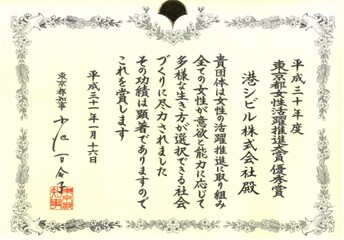 平成三十年度
東京都女性活躍推進大賞優秀賞
港シビル株式会社殿
貴団体は女性の活躍推進に取り組み
全ての女性が意欲と能力に応じて
多様な生き方が選択できる社会
づくりに尽力されました
その功績は顕著でありますので
これを賞します
平成三十一年一月十六日
東京都知事 小池百合子